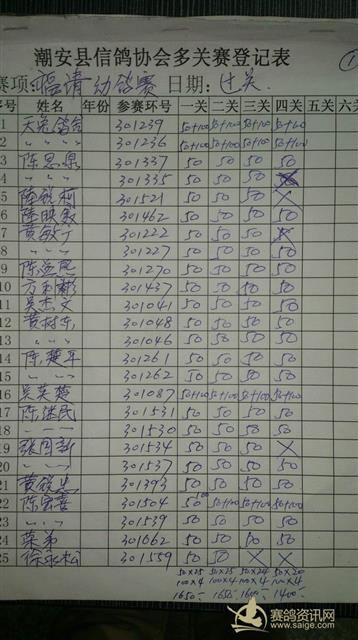 潮安县信鸽协会多关赛登记表
①
赛项: 临清幼鸽赛 日期: 过关
序号 姓名 年份 参赛环号 一关 二关 三关 四关 五关 六关
1 天苑鸽舍 301239 50+100 50+100 50+100 50+100
2 〃 〃 〃 301236 50+100 50+100 50+100 50+100
3 陈思泉 301337 50 50 50 50
4 〃 〃 〃 301335 50 50 50
5 301521 50 50 50 ×
6 陈映敏 301462 50 50 50 50
7 黄敏宁 301222 50 50 50
8 〃 〃 〃 301227 50 50 50 50
9 301270 50 50 50 50
10 301437 50 50 50 50
11 吴杰文 301041 50 50 50 50
12 黄树东 301048 50 50 50 50
13 〃 〃 〃 301046 50 50 50 50
14 陈楚平 301261 50 50 50 50
15 〃 〃 〃 301262 50 50 50 50
16 吴英楚 301087 50+100 50+100 50+100 50+100
17 陈湛民 301531 50 50 50 50
18 301530 50 50 50 50
19 张国新 301534 50 50 50 ×
20 〃 〃 〃 301537 50 50 50 50
21 301393 50 50 50 50
22 陈宏喜 301504 50 100 50+100 50+100 50+100
23 〃 〃 〃 301539 50 50 50 50
24 荣弟 301662 50 50 50 50
25 徐永松 301559 50 50 × ×
50×25 50×25 50×24 50×20
100×4 100×4 100×4 100×4
1650.- 1650.- 1600.- 1400.-
赛鸽资讯网
www.saige.com